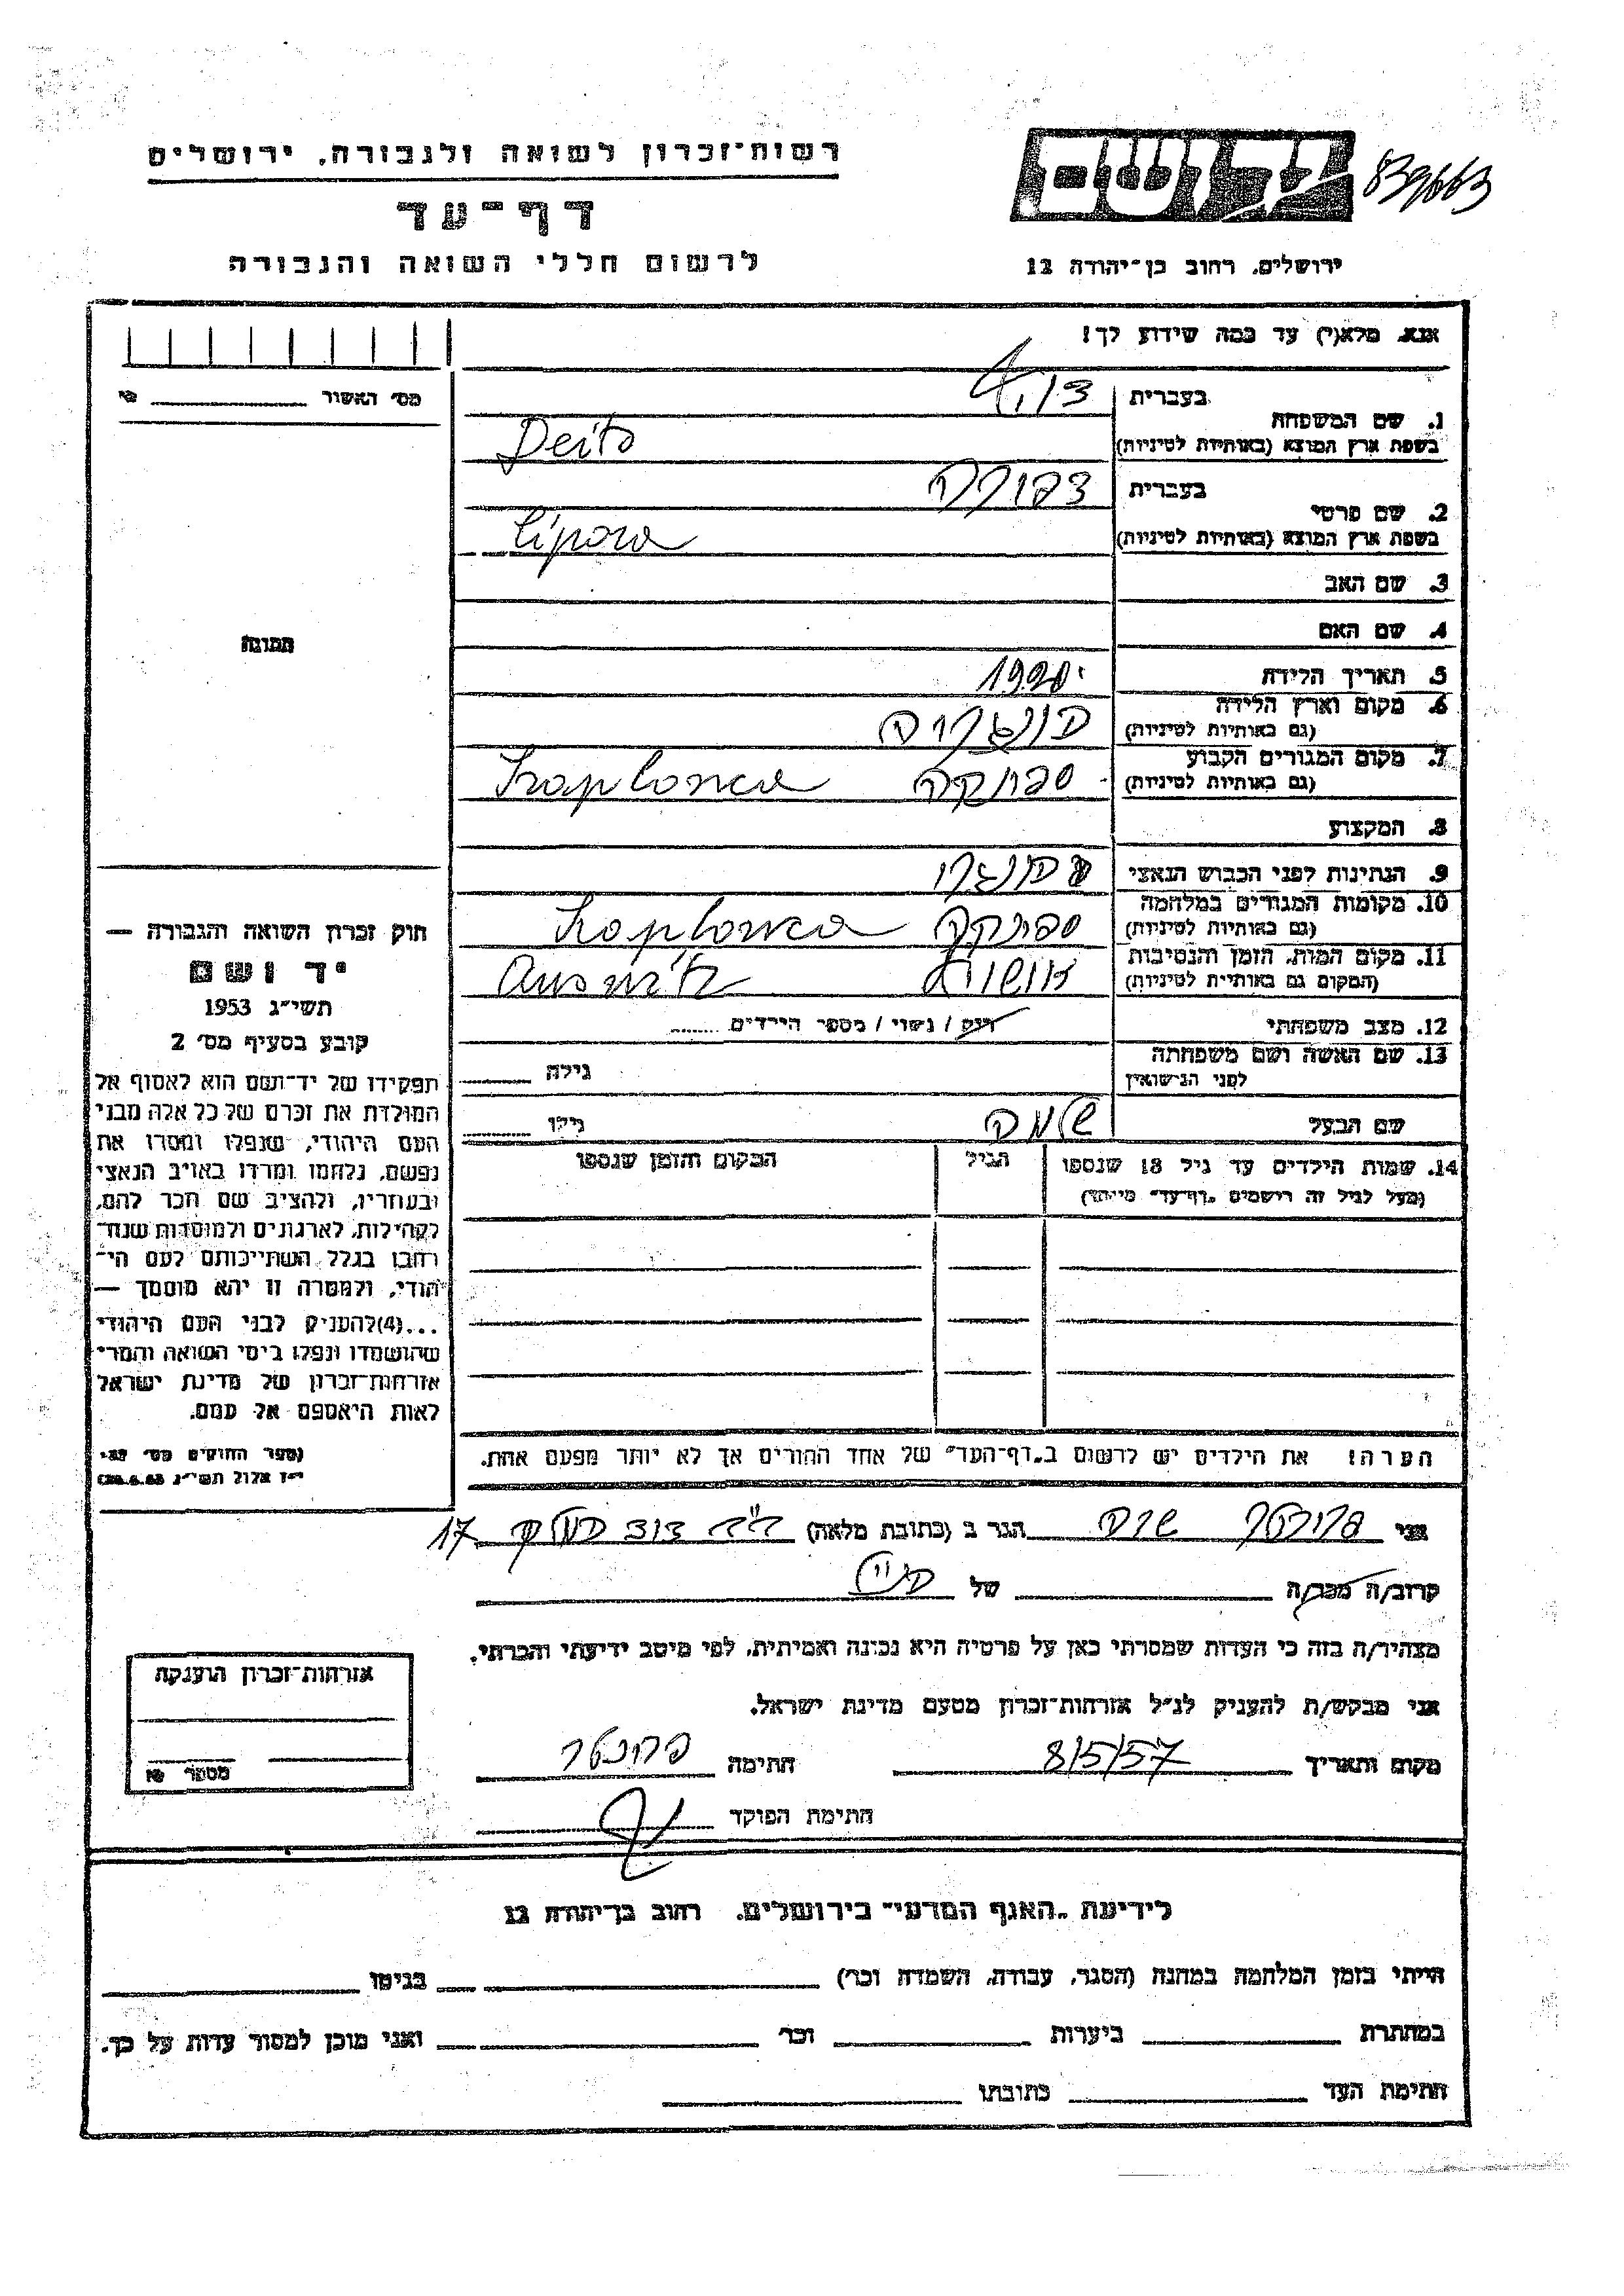 רשות־זכרון לשואה ולגבורה, ירושלים
ידושם
839663
דף־עד
לרשום חללי השואה והגבורה
ירושלים, רחוב בן־יהודה 12
אנא, מלא(י) עד כמה שידוע לך!
מס׳ האשור
1. שם המשפחה
בעברית
בשפת ארץ המוצא (באותיות לטיניות)
2. שם פרטי
בעברית
בשפת ארץ המוצא (באותיות לטיניות)
Cipora
3. שם האב
4. שם האם
תמונה
5. תאריך הלידה 1920
6. מקום וארץ הלידה
(גם באותיות לטיניות)
הונגריה
7. מקום המגורים הקבוע
(גם באותיות לטיניות)
8. המקצוע
9. הנתינות לפני הכבוש הנאצי הונגרי
10. מקומות המגורים במלחמה
(גם באותיות לטיניות)
11. מקום המות, הזמן והנסיבות
(המקום גם באותיות לטיניות)
12. מצב משפחתי רוק / נשוי / מספר הילדים
13. שם האשה ושם משפחתה
לפני הנישואין
גילה
שם הבעל שלמה גילו
14. שמות הילדים עד גיל 18 שנספו הגיל המקום והזמן שנספו
(מעל לגיל זה רושמים „דף־עד״ מיוחד)
הערה! את הילדים יש לרשום ב„דף־העד״ של אחד ההורים אך לא יותר מפעם אחת.
חוק זכרון השואה והגבורה —
יד ושם
תשי״ג 1953
קובע בסעיף מס׳ 2
תפקידו של יד־ושם הוא לאסוף אל
המולדת את זכרם של כל אלה מבני
העם היהודי, שנפלו ומסרו את
נפשם, נלחמו ומרדו באויב הנאצי
ובעוזריו, ולהציב שם וזכר להם,
לקהילות, לארגונים ולמוסדות שנח־
רבו בגלל השתייכותם לעם הי־
הודי, ולמטרה זו יהא מוסמך —
...(4)להעניק לבני העם היהודי
שהושמדו ונפלו בימי השואה והמרי
אזרחות־זכרון של מדינת ישראל
לאות היאספם אל עמם.
(ספר החוקים מס׳ 132,
י״ז אלול תשי״ג 28.8.53)
אני שרה הגר ב (כתובת מלאה) 17
קרוב/ה מכר/ה של
מצהיר/ה בזה כי העדות שמסרתי כאן על פרטיה היא נכונה ואמיתית, לפי מיטב ידיעתי והכרתי.
אני מבקש/ת להעניק לנ״ל אזרחות־זכרון מטעם מדינת ישראל.
מקום ותאריך 8/5/57 חתימה
חתימת הפוקד
אזרחות־זכרון הוענקה
מספר
לידיעת „האגף המדעי״ בירושלים, רחוב בן־יהודה 12
הייתי בזמן המלחמה במחנה (הסגר, עבודה, השמדה וכו׳) בגיטו
במחתרת ביערות וכו׳ ואני מוכן למסור עדות על כך.
חתימת העד כתובתו